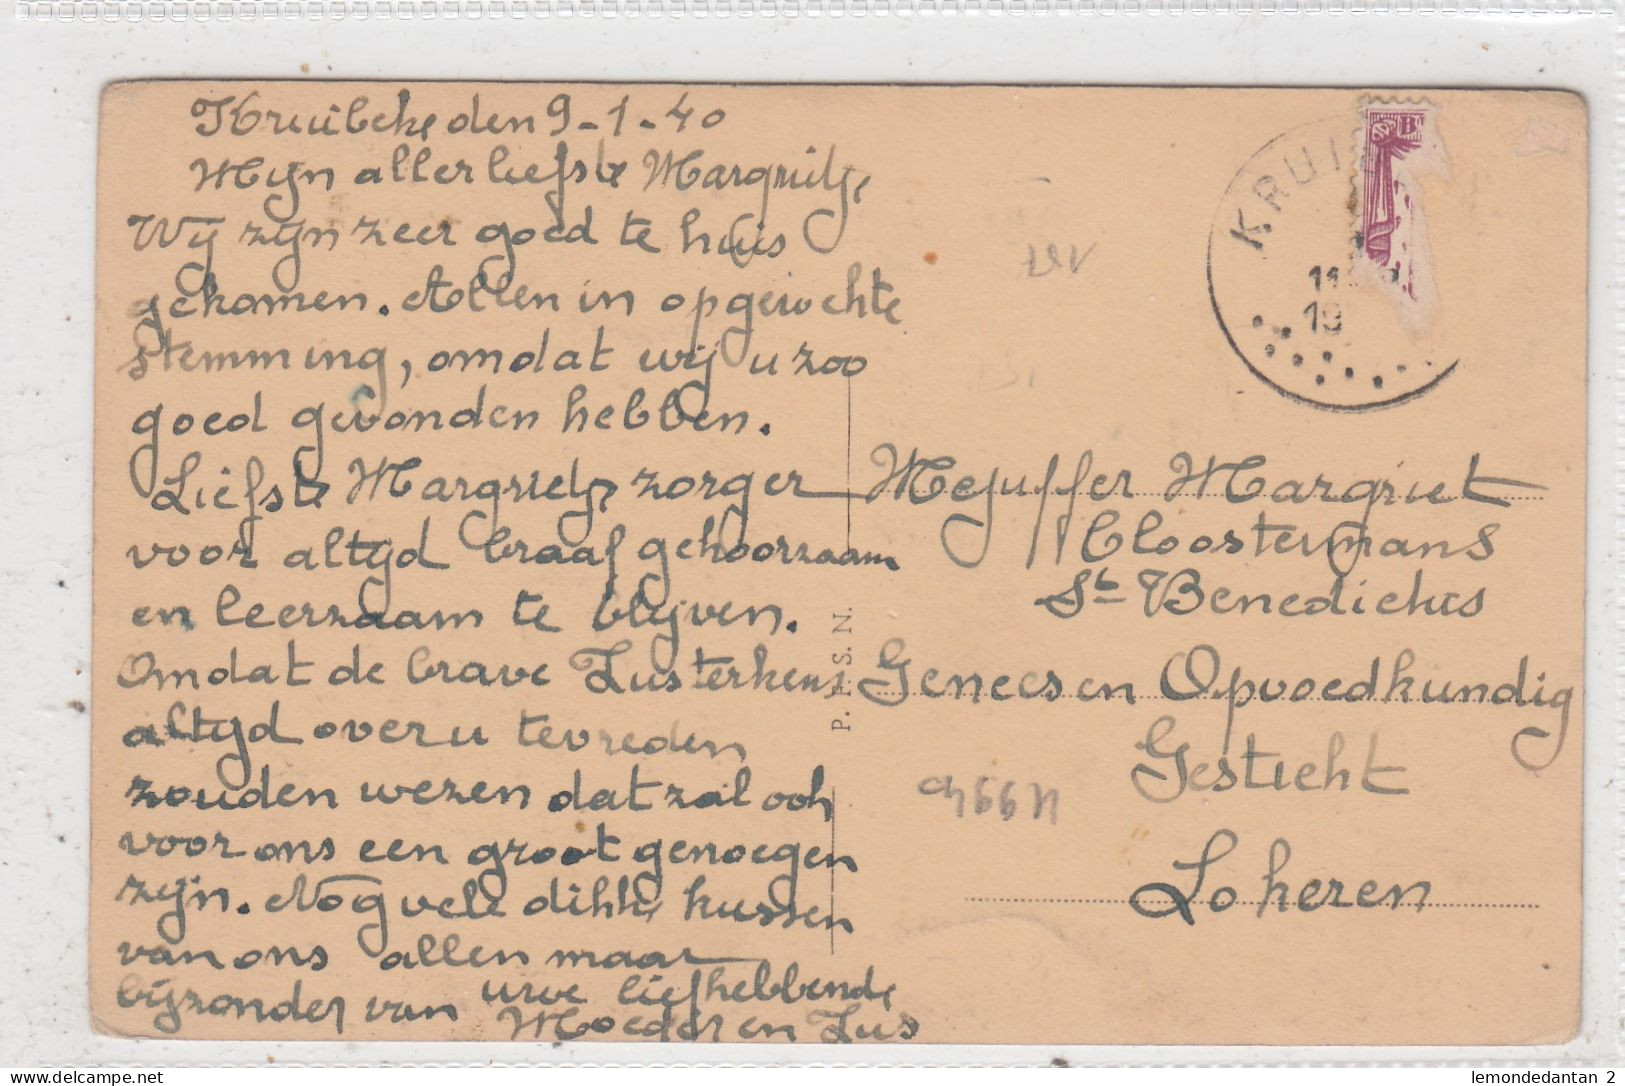 Kruibeke den 9-1-40
Mijn allerliefste Margrietje
Wij zijn zeer goed te huis
gekomen. Allen in opgewekte
stemming, omdat wij u zoo
goed gevonden hebben.
Liefste Margrietje zorger
voor altijd braaf gehoorzaam
en leerzaam te blijven.
Omdat de brave Zusterkens
altijd over u tevreden
zouden wezen dat zal ook
voor ons een groot genoegen
zijn. Nog vele dikke kussen
van ons allen maar
bijzonder van urve liefhebbende
Moeder en Zus
P. F. S. N.
KRUI
11
19
B
Mejuffer Margriet
Cloostermans
St Benedictus
Genees en Opvoedkundig
Gesticht
Lokeren
lemondedantan 2